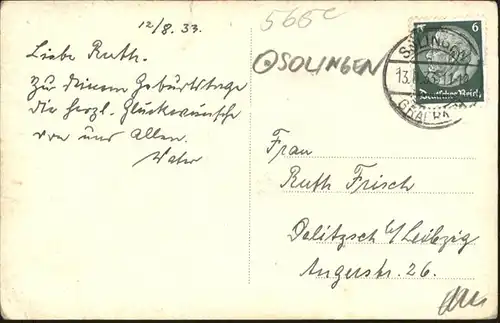 12/8. 33.
Liebe Ruth.
Zu deinem Geburtstage
die herzl. Glückwünsche
von uns Allen.
Vater
565c
SOLINGEN
6
SOLINGEN
Deutsches Reich
Frau
Ruth Frisch
Delitzsch b/Leibzig
Angerstr. 26.